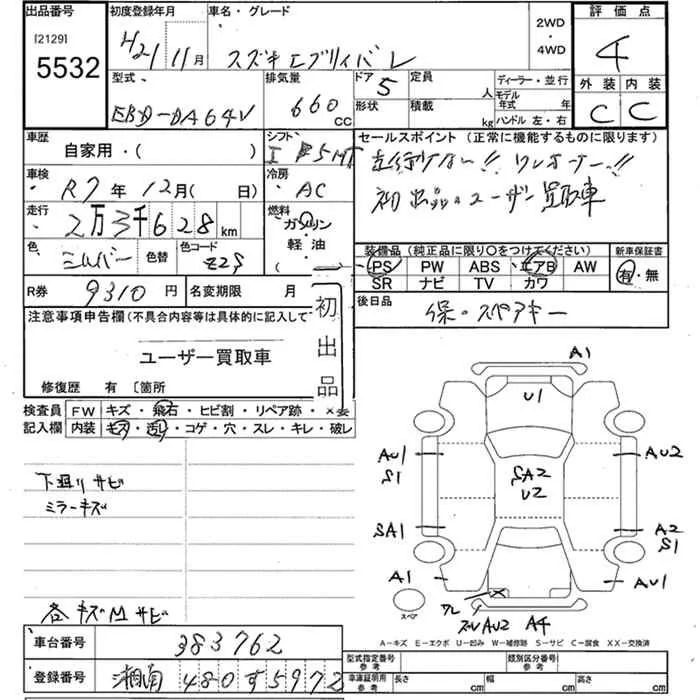 出品番号 初度登録年月 車名・グレード 2WD・4WD 評価点
[2129] 5532 H21 11月 スズキ エブリィバン 4
外装 内装
C C
型式 排気量 ドア 定員 ディーラー・並行
EBD-DA64V 660 CC 5 人 モデル年式 年
形状 積載 kg ハンドル 左・右
車歴 シフト セールスポイント (正常に機能するものに限ります)
自家用・( ) 5MT 走行少ない!! ワンオーナー!!
車検 冷房 初出品。ユーザー買取車
R7年 12月( 日) AC
走行 燃料
2万3千628km ガソリン・軽油
色 色替 色コード 装備品 (純正品に限り○をつけてください) 新車保証書
シルバー Z2S PS PW ABS エアB AW 有・無
( SR ナビ TV カワ
R券 9310円 名変期限 月 後日品
保・スペアキー
注意事項申告欄(不具合内容等は具体的に記入して 初出品
ユーザー買取車
修復歴 有 〔箇所
検査員 FW キズ・飛石・ヒビ割・リペア跡・×要
記入欄 内装 キズ・汚れ・コゲ・穴・スレ・キレ・破レ
A1
U1
AU1 S1 AU2
SA2 U2
SA1 A2 S1
A1 AU1
AU2 A4
スペア
下廻りサビ
ミラーキズ
各キズMサビ
A-キズ E-エクボ U-凹み W-補修跡 S-サビ C-腐食 XX-交換済
車台番号 383762
登録番号 湘南 480 す 5972
型式指定番号 参考 類別区分番号 参考
車庫証明用 参考 長さ cm 幅 cm 高さ cm